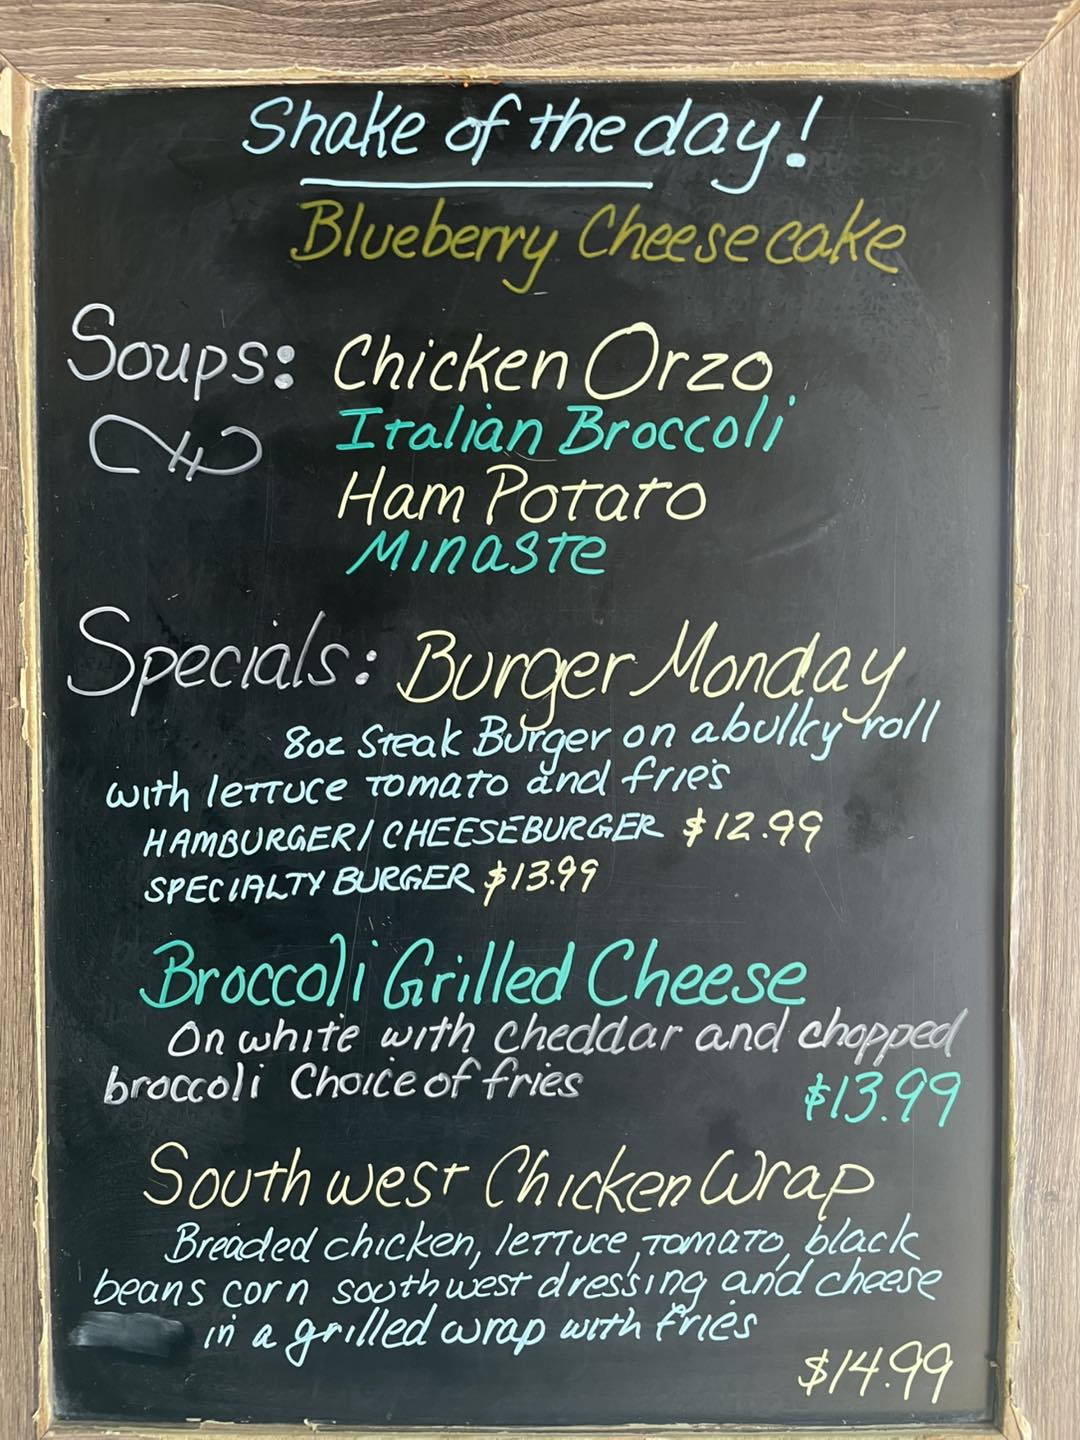 Shake of the day!
Blueberry Cheesecake
Soups: Chicken Orzo
Italian Broccoli
Ham Potato
Minaste
Specials: Burger Monday
8oz Steak Burger on a bulky roll
with lettuce tomato and fries
HAMBURGER/CHEESEBURGER $12.99
SPECIALTY BURGER $13.99
Broccoli Grilled Cheese
On white with cheddar and chopped
broccoli Choice of fries $13.99
Southwest Chicken Wrap
Breaded chicken, lettuce, tomato, black
beans corn southwest dressing and cheese
in a grilled wrap with fries
$14.99